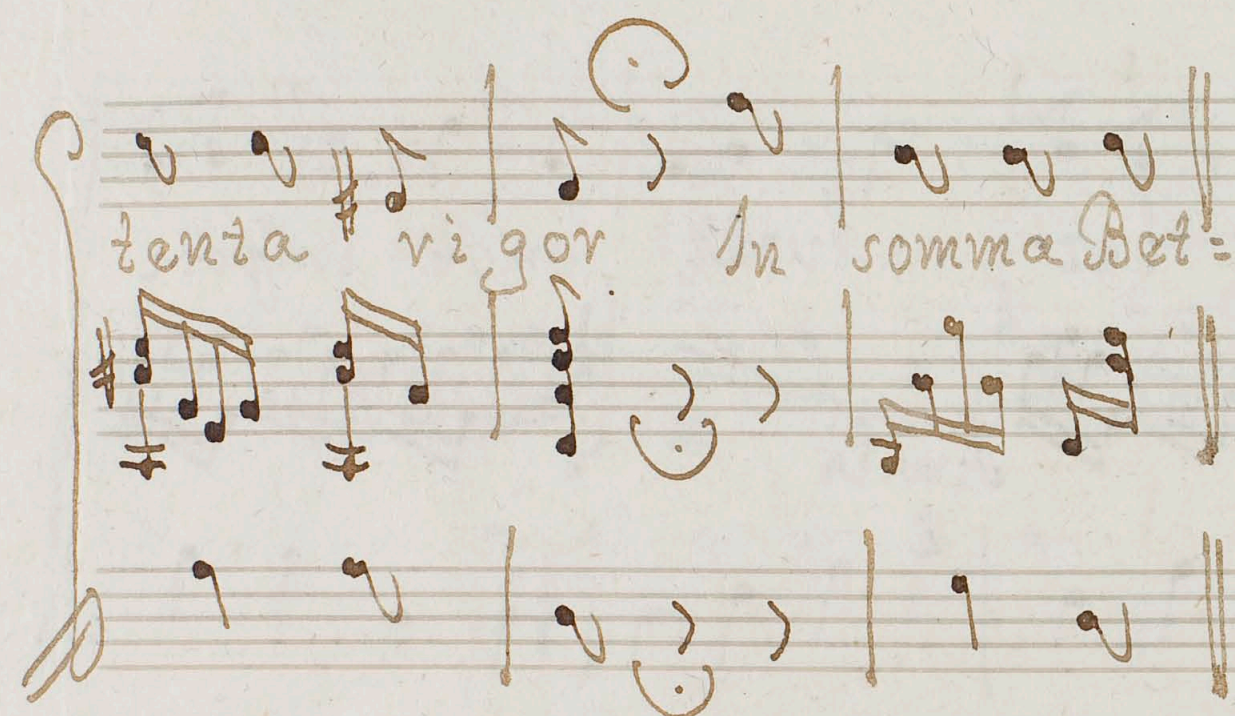 tenta vi gor In somma Bet=